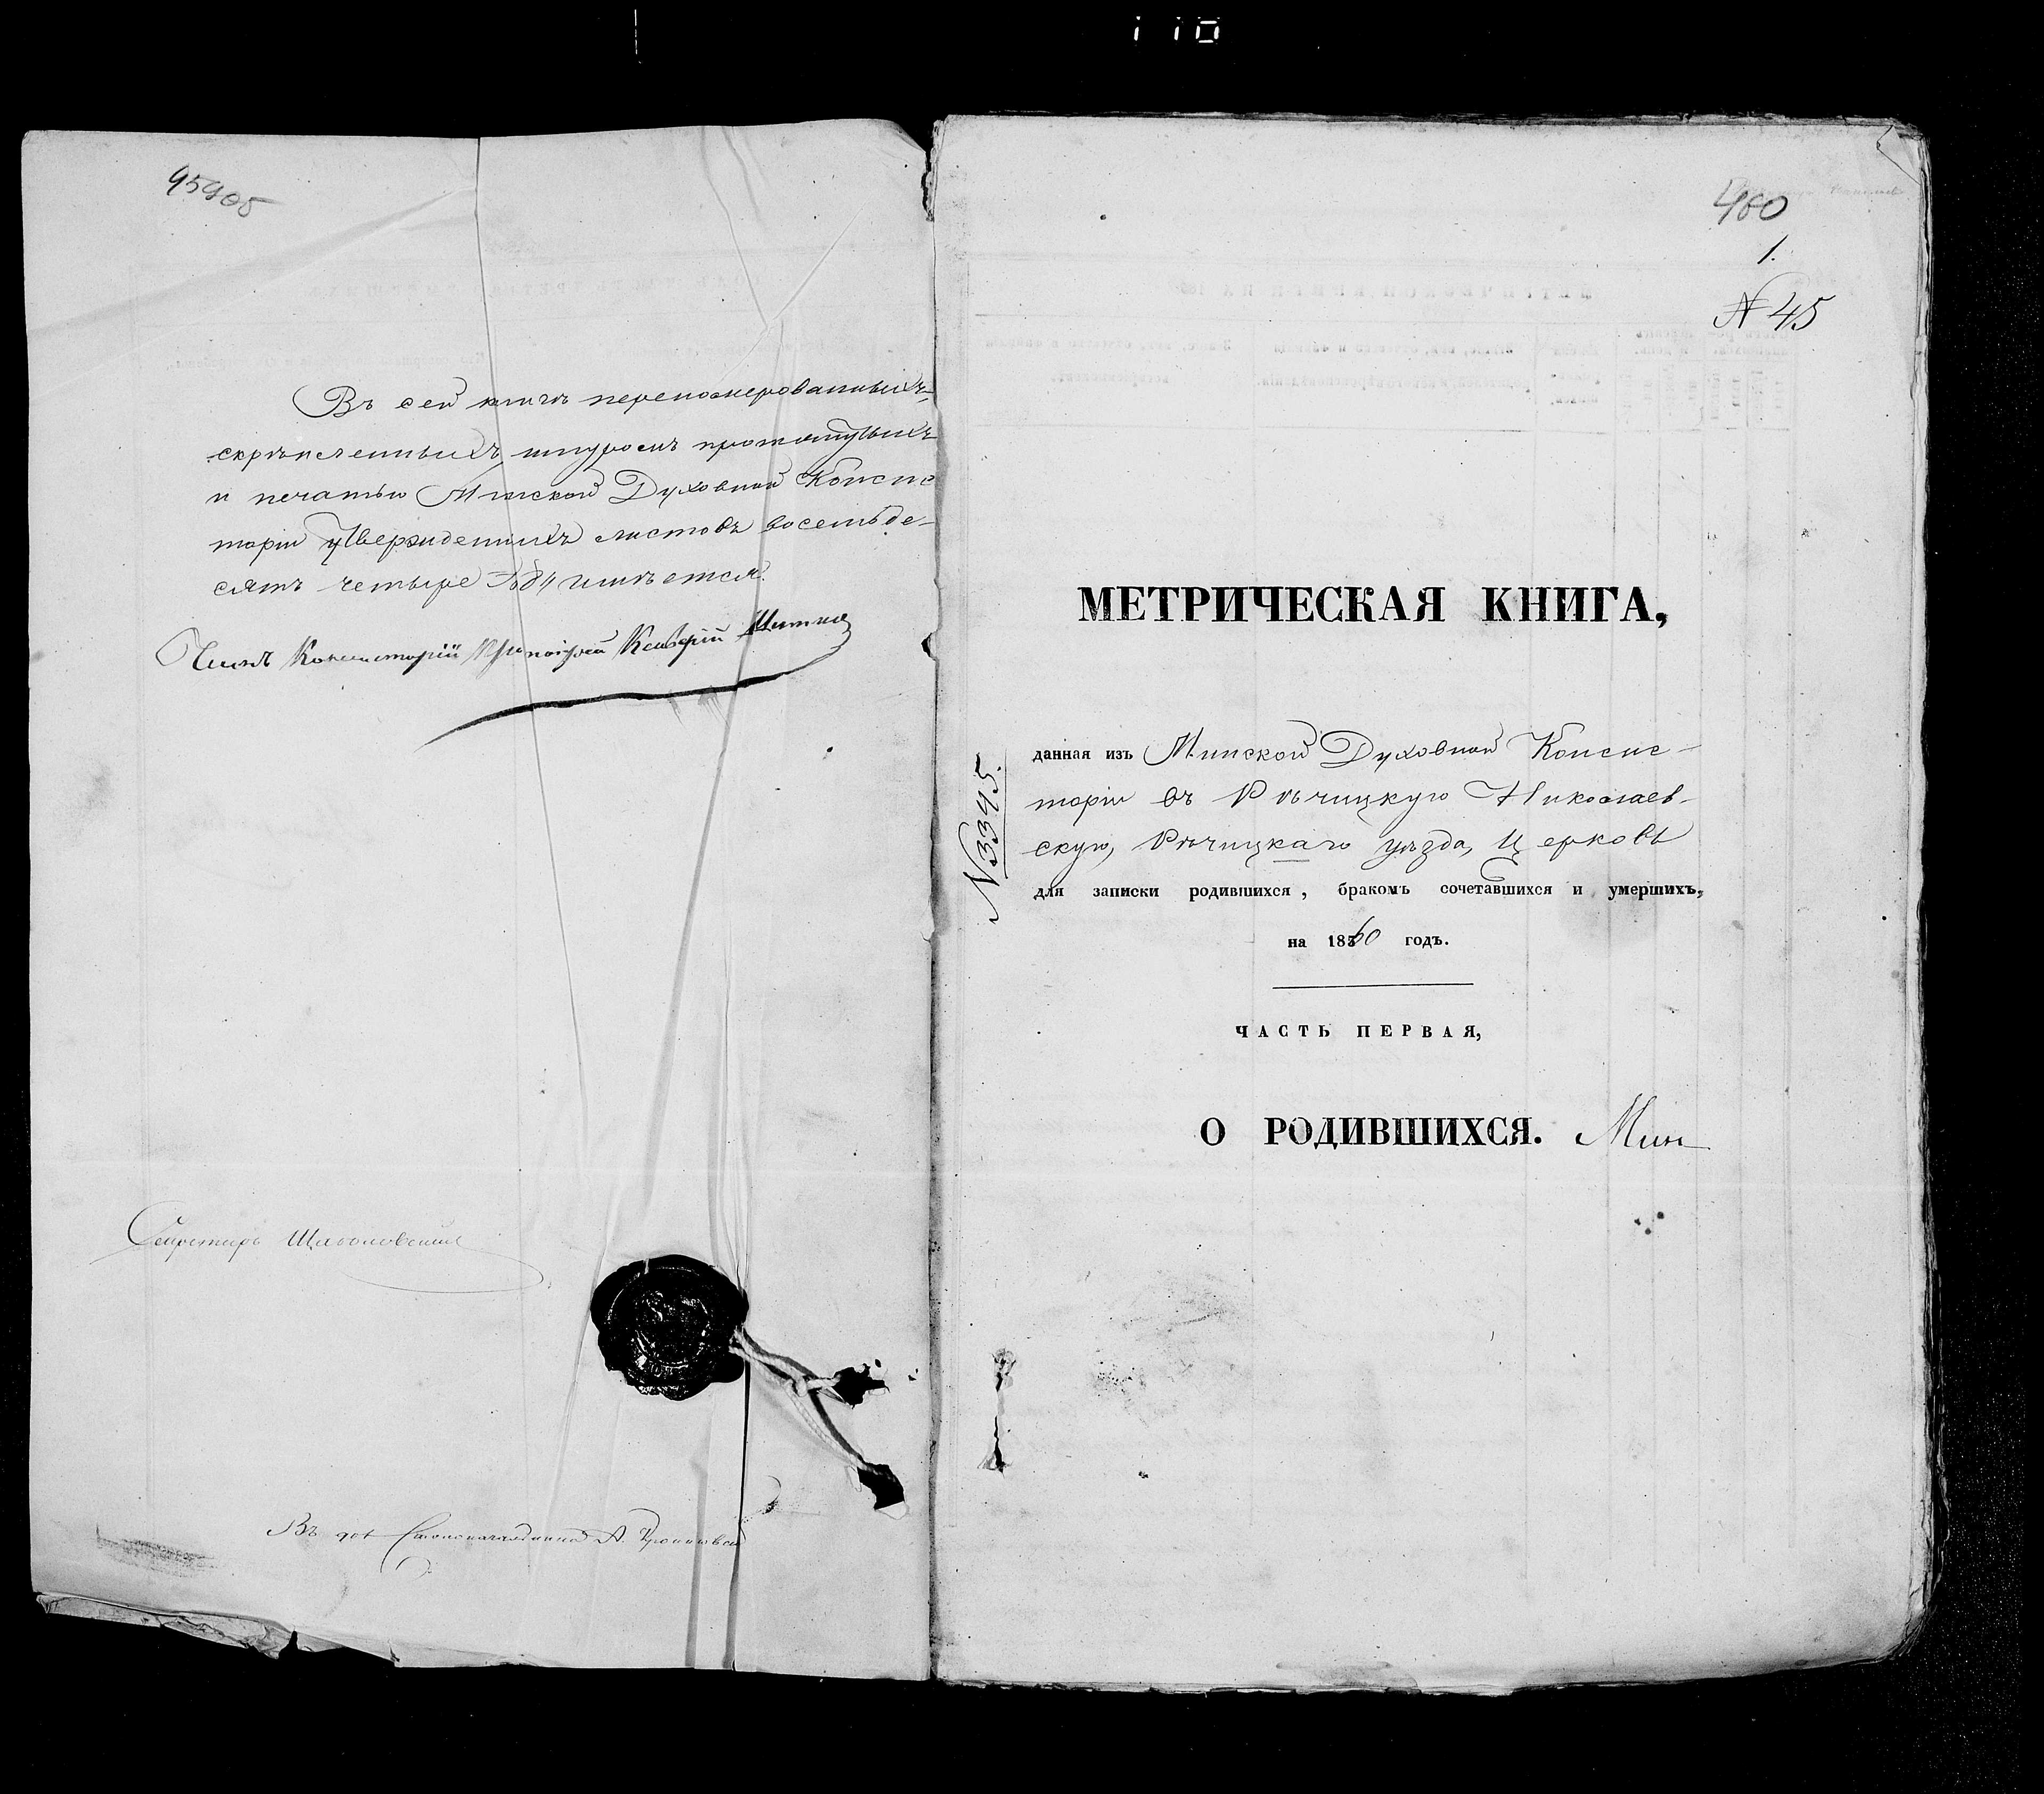 110
95905
Въ сей книгѣ переномерованныхъ,
скрѣпленныхъ, шнуромъ протянутыхъ
и печатью Минской Духовной Консис
торіи утвержденныхъ листовъ восемьде-
сятъ четыре 84 имѣется.
Членъ Консисторіи Протоіерей
Секретарь
Въ дол Столоначальника А.
460
1.
№ 45
МЕТРИЧЕСКАЯ КНИГА,
№ 3345.
данная изъ Минской Духовной Консис-
торіи въ Рѣчицкую Николаев-
скую, Рѣчицкаго уѣзда, Церковь
для записки родившихся, бракомъ сочетавшихся и умершихъ,
на 1860 годъ.
ЧАСТЬ ПЕРВАЯ,
О РОДИВШИХСЯ. Мин